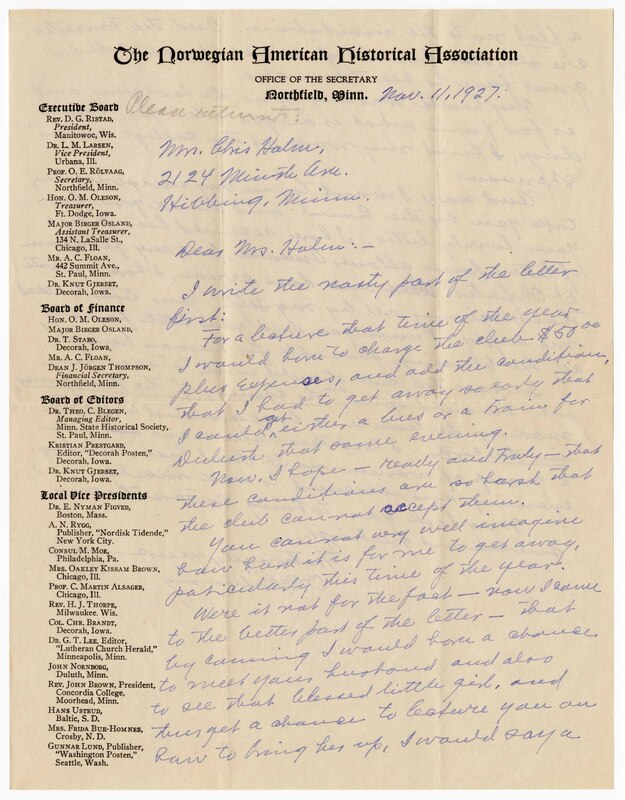 The Norwegian American Historical Association
OFFICE OF THE SECRETARY
Northfield, Minn. Nov. 11, 1927.
Please return!
Executive Board
REV. D. G. RISTAD,
President,
Manitowoc, Wis.
DR. L. M. LARSEN,
Vice President,
Urbana, Ill.
PROF. O. E. RÖLVAAG,
Secretary,
Northfield, Minn.
HON. O. M. OLESON,
Treasurer,
Ft. Dodge, Iowa.
MAJOR BIRGER OSLAND,
Assistant Treasurer,
134 N. LaSalle St.,
Chicago, Ill.
MR. A. C. FLOAN,
442 Summit Ave.,
St. Paul, Minn.
DR. KNUT GJERSET,
Decorah, Iowa.
Board of Finance
HON. O. M. OLESON,
MAJOR BIRGER OSLAND,
DR. T. STABO,
Decorah, Iowa,
MR. A. C. FLOAN,
DEAN J. JÖRGEN THOMPSON,
Financial Secretary,
Northfield, Minn.
Board of Editors
DR. THEO. C. BLEGEN,
Managing Editor,
Minn. State Historical Society,
St. Paul, Minn.
KRISTIAN PRESTGARD,
Editor, "Decorah Posten,"
Decorah, Iowa.
DR. KNUT GJERSET,
Decorah, Iowa.
Local Vice Presidents
DR. E. NYMAN FIGVED,
Boston, Mass.
A. N. RYGG,
Publisher, "Nordisk Tidende,"
New York City.
CONSUL MOE,
Philadelphia, Pa.
MRS. OAKLEY KISSAM BROWN,
Chicago, Ill.
PROF. C. MARTIN ALSAGER,
Chicago, Ill.
REV. H. J. THORPE,
Milwaukee. Wis.
COL. CHR. BRANDT,
Decorah, Iowa.
DR. G. T. LEE, Editor,
"Lutheran Church Herald,"
Minneapolis, Minn.
JOHN NORNBORG,
Duluth, Minn.
REV. JOHN BROWN, President,
Concordia College,
Moorhead, Minn.
HANS USTRUD,
Baltic, S. D.
MRS. FRIDA BUE-HOMNES,
Crosby, N. D.
GUNNAR LUND, Publisher,
"Washington Posten,"
Seattle, Wash.
Mrs. Chris Holm,
2124 Minoth Ave.
Hibbing, Minn.
Dear Mrs. Holm:-
I write the nasty part of the letter
first:
For a lecture that time of the year
I would have to charge the club $50 00
plus expenses, and add the condition,
that I had to get away so early that
I could get either a bus or a train for
Duluth that same evening.
Now, I hope - really and truly - that
these conditions are so harsh that
the club cannot accept them.
You cannot very well imagine
how hard it is for me to get away,
paticularly this time of the year.
Were it not for the fact - now I come
to the better part of the letter - that
by coming I would have a chance
to meet your husband and also
to see that blessed little girl, and
thus get a chance to lecture you on
how to bring her up, I would say a